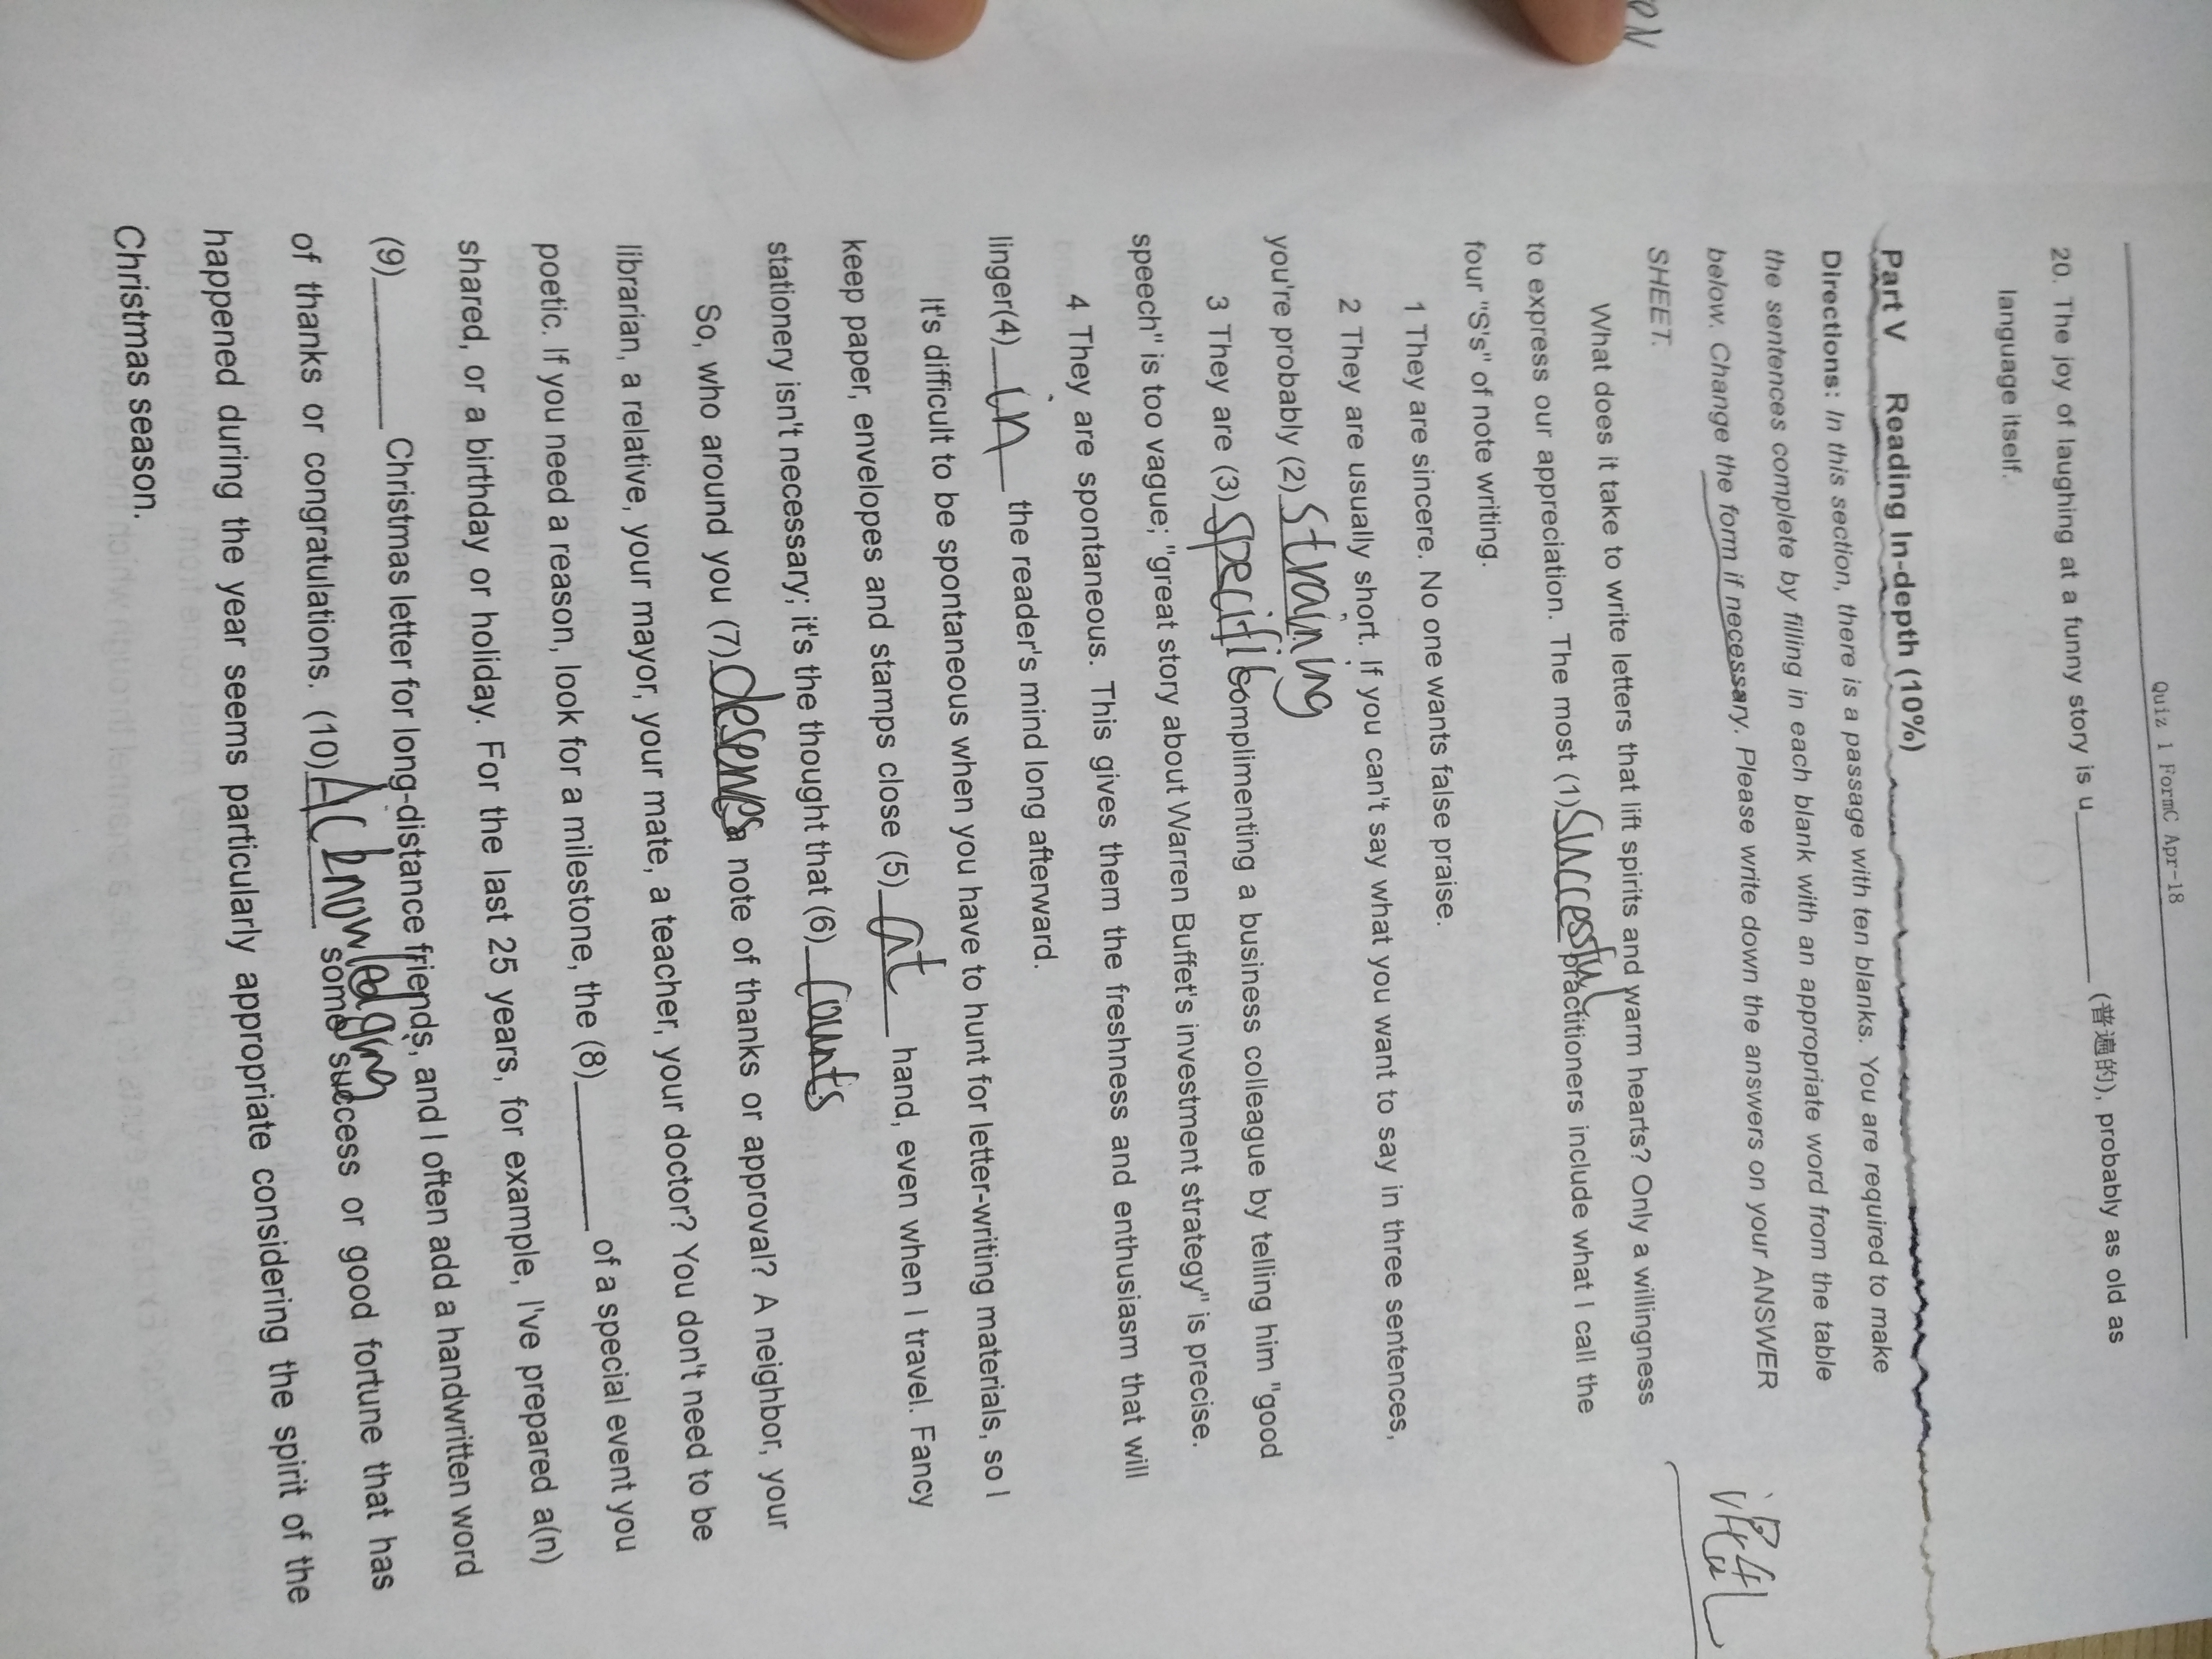 Quiz 1 FormC Apr-18
20. The joy of laughing at a funny story is u__________ (普遍的), probably as old as
language itself.
Part V Reading In-depth (10%)
Directions: In this section, there is a passage with ten blanks. You are required to make
the sentences complete by filling in each blank with an appropriate word from the table
below. Change the form if necessary. Please write down the answers on your ANSWER
混乱
SHEET.
What does it take to write letters that lift spirits and warm hearts? Only a willingness
to express our appreciation. The most (1) successful practitioners include what I call the
four "S's" of note writing.
1 They are sincere. No one wants false praise.
2 They are usually short. If you can't say what you want to say in three sentences,
you're probably (2) straining
3 They are (3) specific complimenting a business colleague by telling him "good
speech" is too vague; "great story about Warren Buffet's investment strategy" is precise.
4 They are spontaneous. This gives them the freshness and enthusiasm that will
linger(4) in the reader's mind long afterward.
It's difficult to be spontaneous when you have to hunt for letter-writing materials, so I
keep paper, envelopes and stamps close (5) at hand, even when I travel. Fancy
stationery isn't necessary; it's the thought that (6) counts
So, who around you (7) deserves a note of thanks or approval? A neighbor, your
librarian, a relative, your mayor, your mate, a teacher, your doctor? You don't need to be
poetic. If you need a reason, look for a milestone, the (8)________ of a special event you
shared, or a birthday or holiday. For the last 25 years, for example, I've prepared a(n)
(9)________ Christmas letter for long-distance friends, and I often add a handwritten word
of thanks or congratulations. (10) Acknowledging some success or good fortune that has
happened during the year seems particularly appropriate considering the spirit of the
Christmas season.